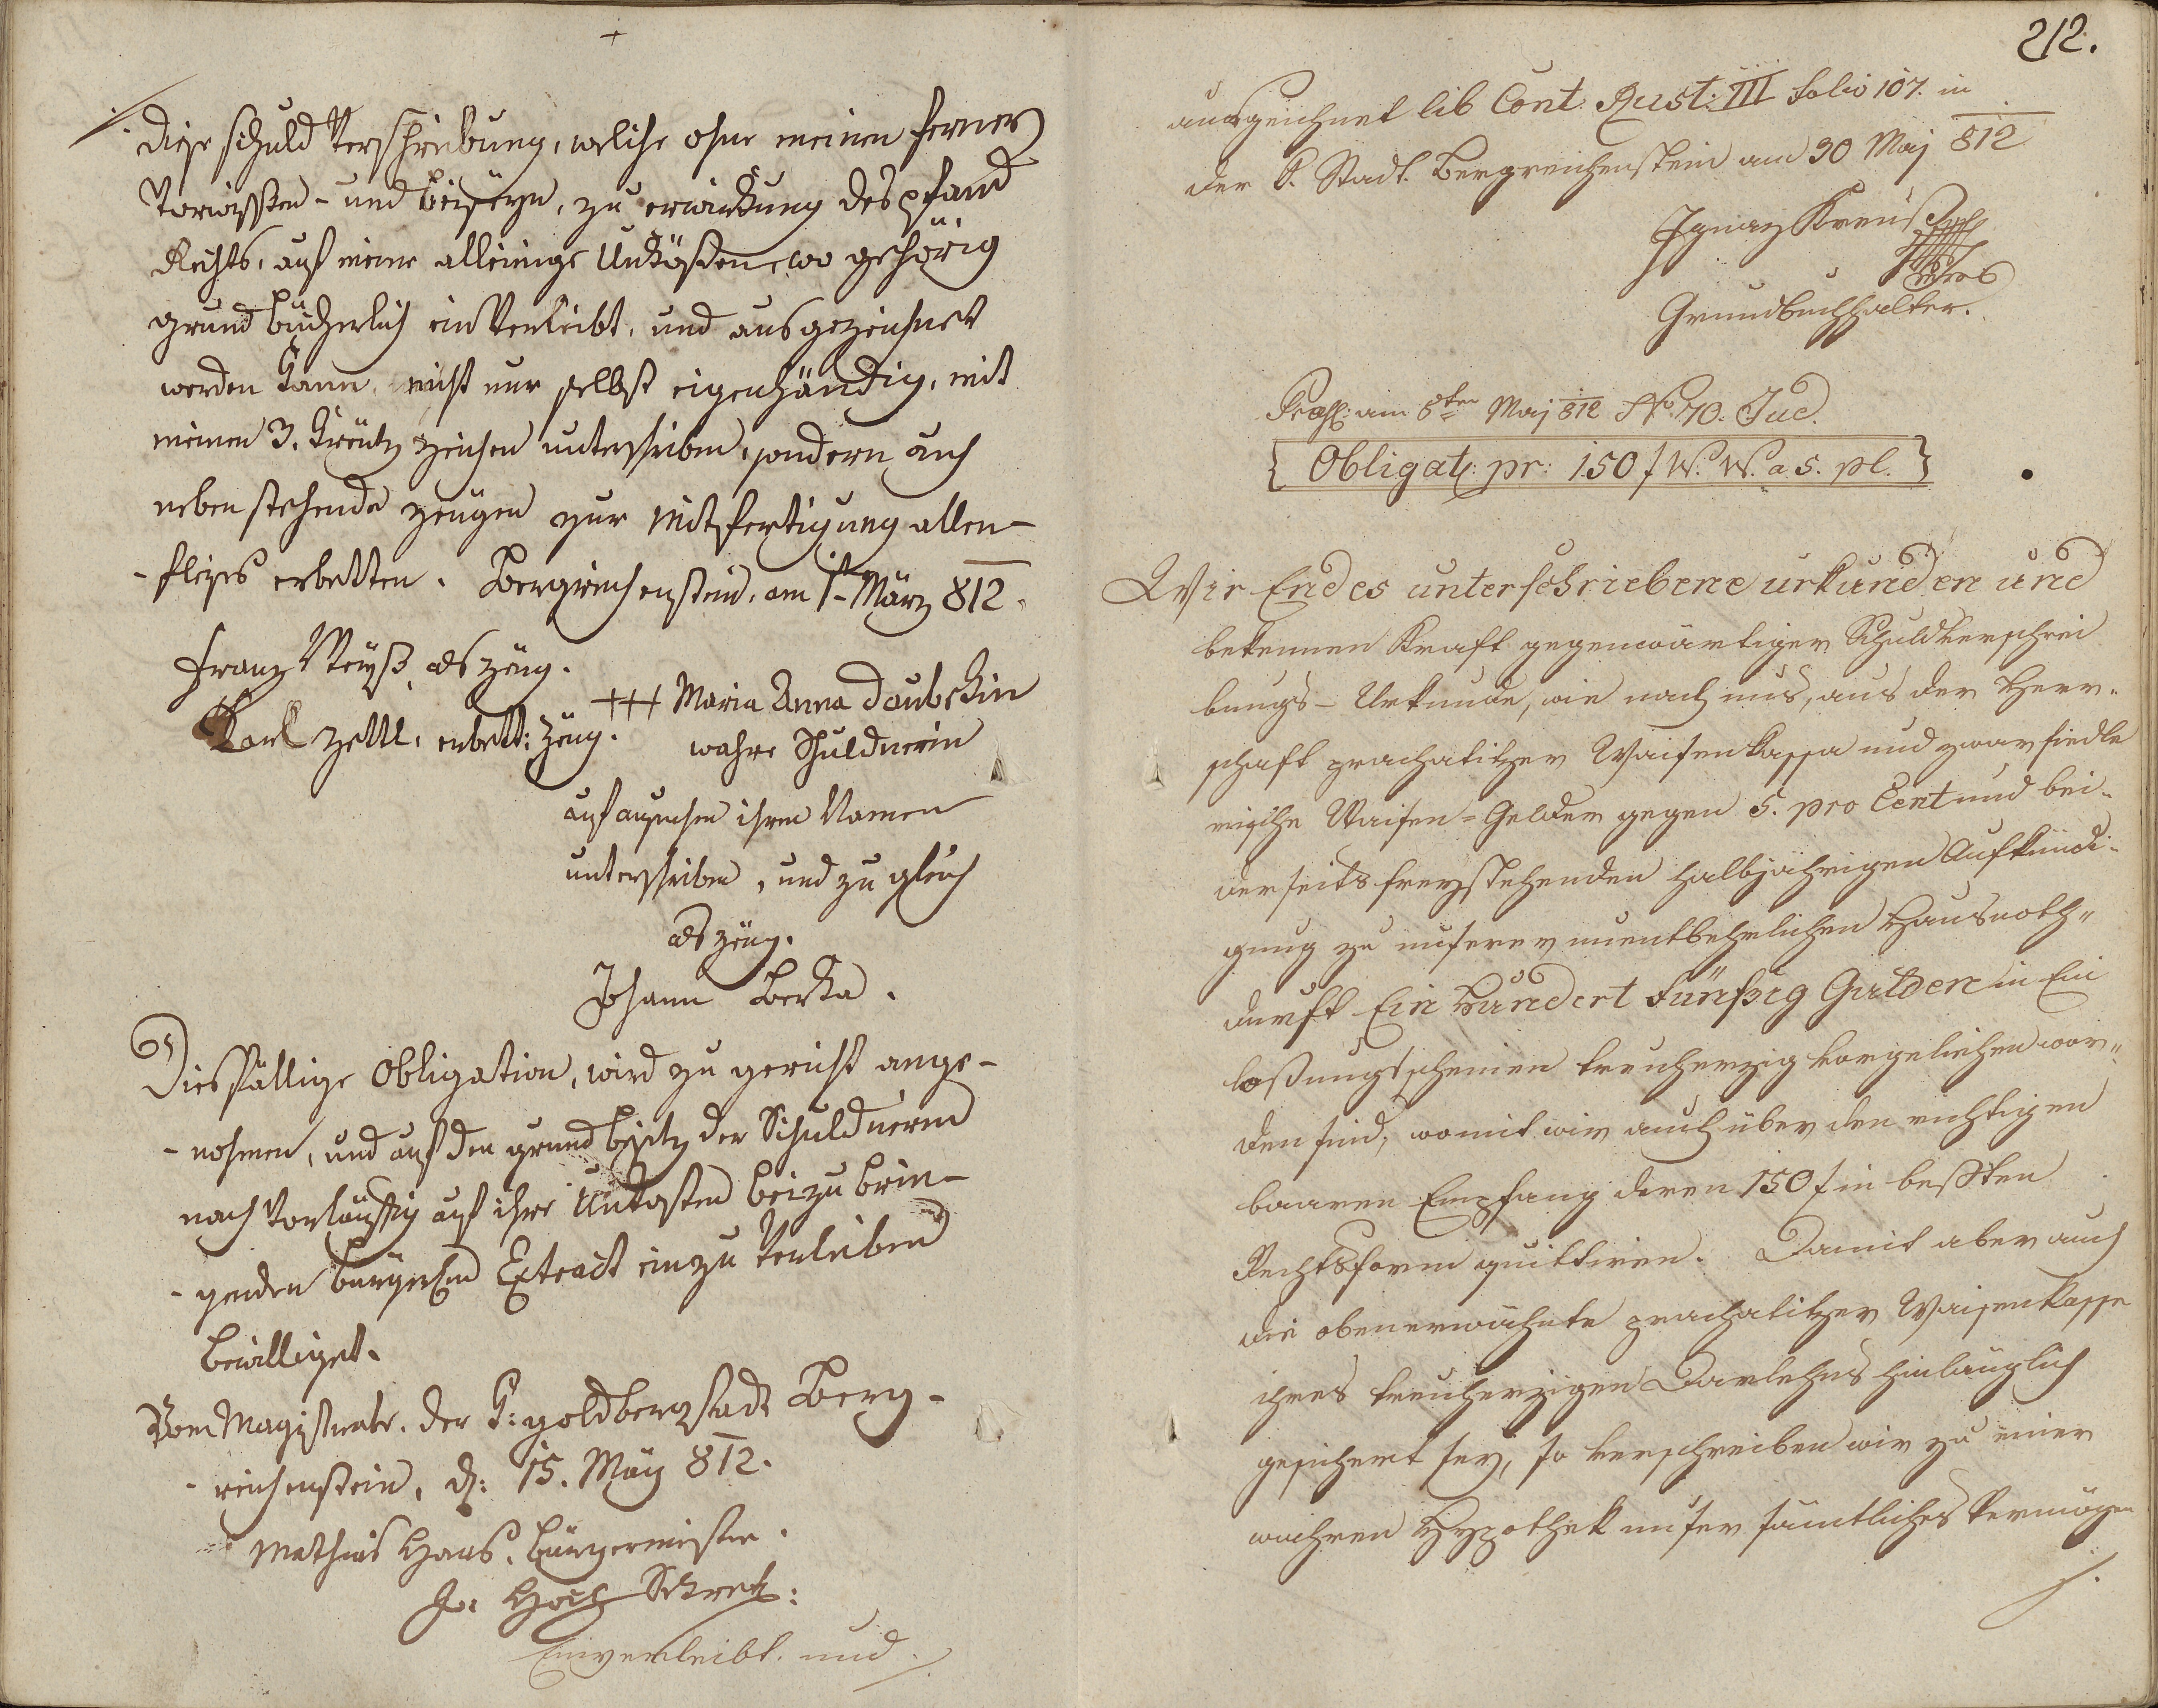 diese Schuld Verschreibung, welche ohne meinen ferner
Vorwissten- und beiseyn, zu erwirkung des pfand
Rechts, auf meine alleinige Unkösten, wo gehörig
grund bücherlich ein Verleibt, und ausgezeichnet
werden kann, nicht nur selbst eigenhändig, mit
meinen 3. kreutz zeichen unterschrieben, sondern auch
neben stehende zeugen zur Mitfertigung allen-
-fleises erbetten. Bergreichenstein, am 1t März 812.
Franz Weyß als zeug.
Karl Zettl, erbett: zeug.
+++ Maria Anna Daubekin
wahre Schuldnerin
auf ansuchen ihren Namen
unterschrieben, und zu gleich
als zeug.
Johann Berka.
Diesfällige Obligation, wird zu gericht ange-
-nohmen, und auf den grund besitz der Schuldnerin
nach Vorläuffig auf ihre Unkosten beizu brin-
-genden bürgerlichen Extract einzu Verleiben
bewilliget.
Vom Magistrate der K: goldbergstadt Berg-
-reichenstein, d: 15. May 812.
Mathias Haas, Bürgermeister.
J. Hoch Sekret:
Einverleibt und ./.
212.
ausgezeichnet lib Cont: Rust: III folio 107. in
der K. Stadt Bergreichenstein am 30 Maj 812
Ignaz Kreuß
Grundbuchhalter.
Præs: am 8ten Maj 812 No 70. Jud.
{ Obligat: pr: 150 f W. W. a 5. pl. }
Wir Endes unterschriebene urkunden und
bekennen Kraft gegenwärtiger Schuldverschrei
bungs- Urkunde, wie nach uns, aus der Herr-
schaft prachatitzer Waisenkassa und zwar
Waisen-Gelder gegen 5. pro Cent und bei-
derseits freystehenden halbjährigen Aufkündi-
gung zu unserer unentbehrlichen Hausnoth-
durft Ein Hundert Fünfzig Gulden in Ein
lösungsscheinen treuherzig vorgeliehen wor-
den sind, womit wir auch über den richtigen
baaren Empfang deren 150 f in beßten
Rechtsform quittiren. Damit aber auch
die obenerwähnte prachatitzer Waisenkasse
ihres treuherzigen Darlehns hinlänglich
gesichert sey, so verschreiben wir zu einer
wahren Hypothek unser sämtliches Vermögen
./.